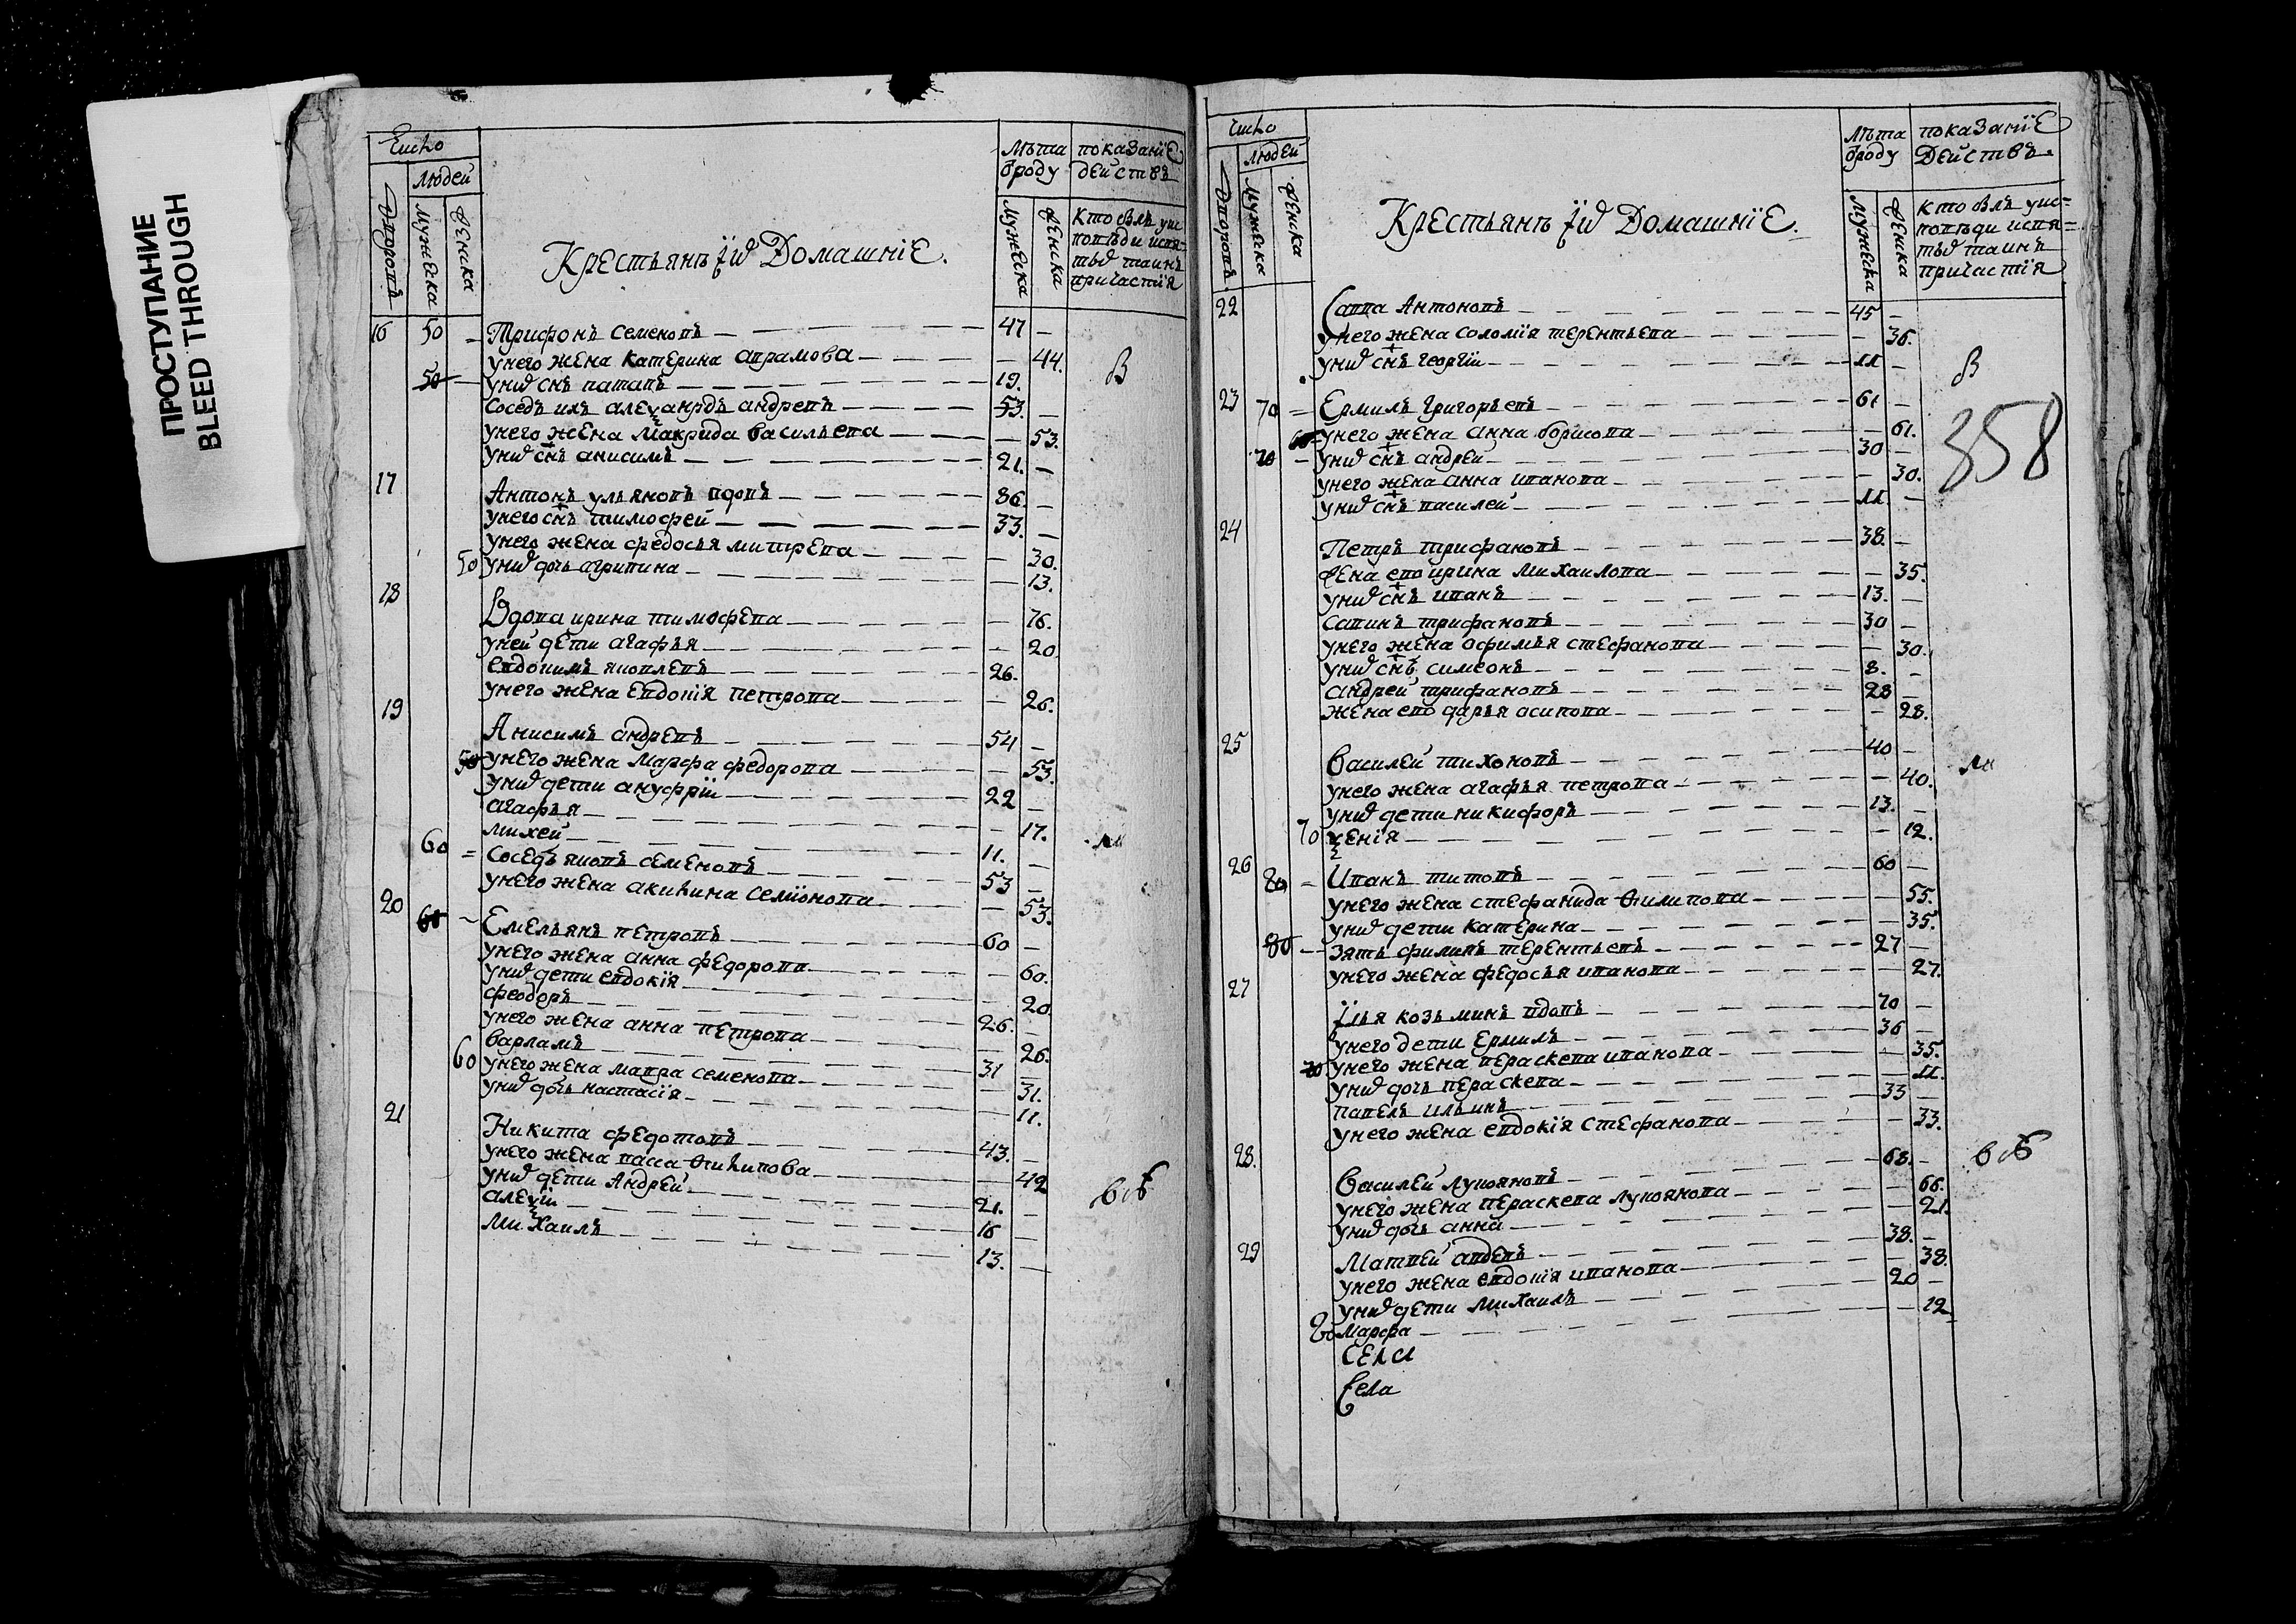 ПРОСТУПАНИЕ
BLEED THROUGH
Число
людей
Дворовъ
мужеска
женска
Крестьянъ їихъ Домашнїе.
лѣта
ѿроду
мужеска
женска
показанїе
действъ
Кто былъ уис
повѣди исвя
тыхъ таинъ
причастїя
16 50 Трифонъ семеновъ 47
унего жена катерина аврамова 44.
50 унихъ снъ патапъ 19.
соседъ ихъ алеѯандръ андревъ 53.
унего жена макрида васильева 53.
унихъ снъ анисимъ 21.
17 Антонъ ульяновъ вдовъ 86.
унего снъ тимофей 33.
унего жена федосья митрева 30.
50 унихъ дочь агрипина 13.
18 Вдова ирина тимофева 76.
уней дети агафья 20.
евдокимъ яковлевъ 26.
унего жена евдокїя петрова 26.
19 Анисимъ андревъ 54
50 унего жена марфа федорова 53.
унихъ дети ануфрїи 22
агафья 17.
михей 11.
60 соседъ яковъ семеновъ 53
унего жена акилина семїонова 53.
20 60 Емельянъ петровъ 60
унего жена анна федорова 60.
унихъ дети евдокїя 20.
феодоръ 26.
унего жена анна петрова 26.
варламъ 31
60 унего жена мавра семенова 31.
унихъ дочь настасїя 11.
21 Никита федотовъ 43.
унего жена васса ѳилипова 42
унихъ дети Андрей 21.
алеѯїи 16
михаилъ 13.
В
ли
Число
людей
Дворовъ
мужеска
женска
Крестьянъ їихъ Домашнїе.
лѣта
ѿроду
мужеска
женска
показанїе
Действъ.
кто былъ уис=
повѣди исвя=
тыхъ таинъ
причастїя
22 Савва Антоновъ 45
унего жена соломїя терентьева 36.
унихъ снъ георгїи 11
23 70 Ермилъ григорьевъ 61
унего жена анна борисова 61.
70 унихъ снъ андрей 30
унего жена анна иванова 30.
унихъ снъ василей 11
24 Петръ трифановъ 38.
жена ево ирина михаилова 35.
унихъ снъ иванъ 13.
савинъ трифановъ 30
унего жена офимья стефанова 30.
унихъ снъ симеонъ 8.
андрей трифановъ 28
жена ево дарья осипова 28.
25 василей тихоновъ 40
унего жена агафья петрова 40.
унихъ дети никифоръ 13.
70 ѯенїя 12.
26 80 Иванъ титовъ 60
унего жена стефанида ѳилипова 55.
унихъ дети катерина 35.
80 зять филипъ терентьевъ 27
унего жена федосья иванова 27.
27 Їлья козьминъ вдовъ 70
унего дети Ермилъ 36
70 унего жена пераскева иванова 35.
унихъ дочь пераскева 11.
павелъ ильинъ 33
унего жена евдокїя стефанова 33.
28. Василей лукояновъ 68.
унего жена пераскева лукоянова 66.
унихъ дочь анна 21.
29 Матвей авдевъ 38.
унего жена евдокїя иванова 38.
унихъ дети михаилъ 20
80 марфа 12
села
села
В
358
ли